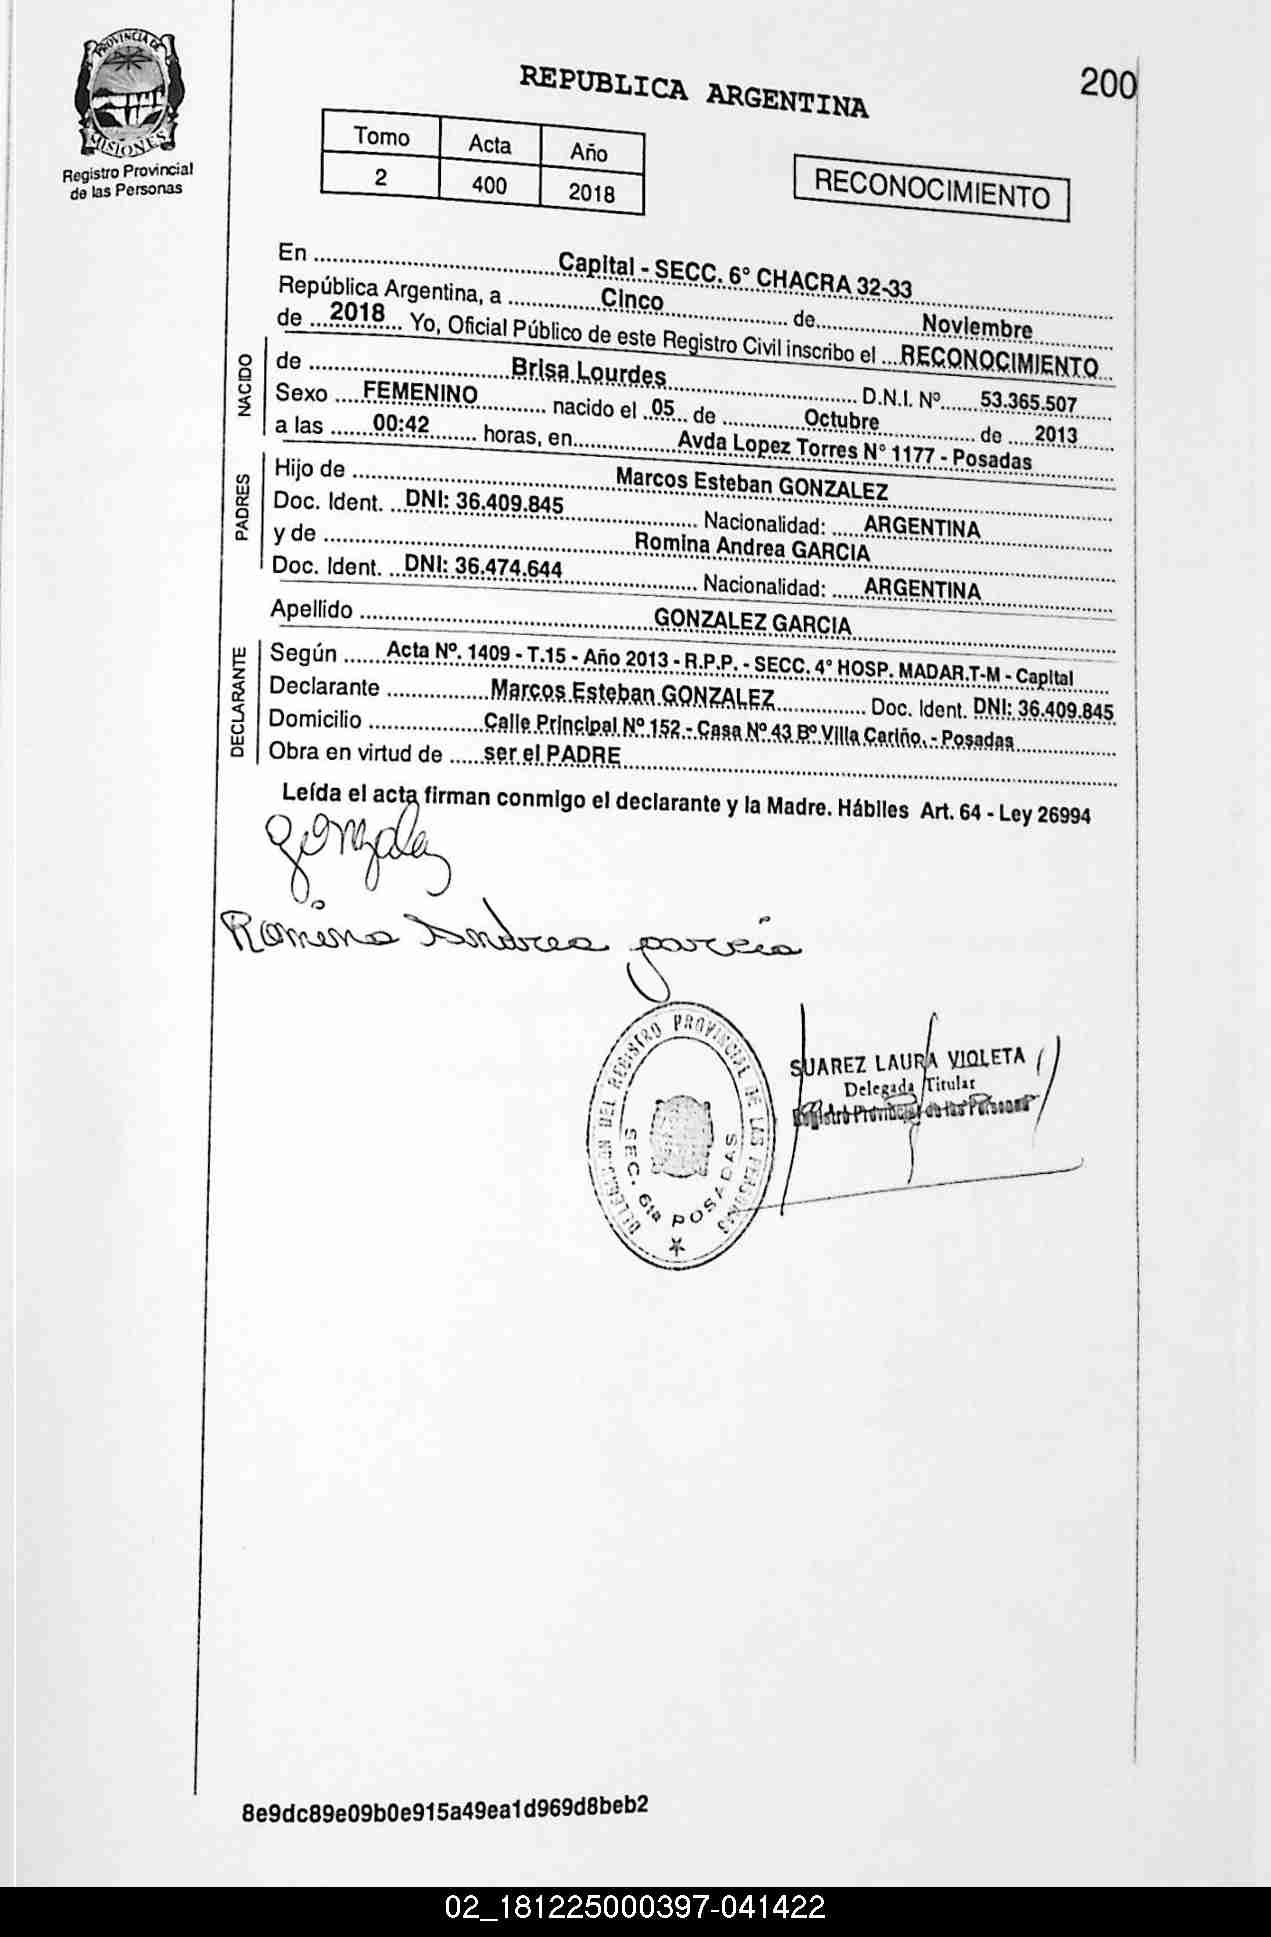 PROVINCIA DE
MISIONES
Registro Provincial
de las Personas
200
REPUBLICA ARGENTINA
Tomo Acta Año
2 400 2018
RECONOCIMIENTO
En ........ Capital - SECC. 6° CHACRA 32-33 ........
República Argentina, a ........ Cinco ........ de ........ Noviembre ........
de ... 2018 ... Yo, Oficial Público de este Registro Civil inscribo el ... RECONOCIMIENTO ...
NACIDO
de ........ Brisa Lourdes ........ D.N.I. Nº ...... 53.365.507 ......
Sexo ..... FEMENINO ........ nacido el .. 05 .. de ........ Octubre ........ de .... 2013 ....
a las ...... 00:42 ....... horas, en ........ Avda Lopez Torres N° 1177 - Posadas ........
PADRES
Hijo de ........ Marcos Esteban GONZALEZ ........
Doc. Ident. .. DNI: 36.409.845 ........ Nacionalidad: ..... ARGENTINA ........
y de ........ Romina Andrea GARCIA ........
Doc. Ident. .. DNI: 36.474.644 ........ Nacionalidad: ..... ARGENTINA ........
Apellido ........ GONZALEZ GARCIA ........
DECLARANTE
Según ...... Acta Nº. 1409 - T.15 - Año 2013 - R.P.P. - SECC. 4° HOSP. MADAR.T-M - Capital ......
Declarante ........ Marcos Esteban GONZALEZ ........ Doc. Ident. DNI: 36.409.845
Domicilio ........ Calle Principal Nº 152 - Casa Nº 43 Bº Villa Cariño. - Posadas ........
Obra en virtud de ..... ser el PADRE ........
Leída el acta firman conmigo el declarante y la Madre. Hábiles Art. 64 - Ley 26994
Gonzalez
Romina Andrea garcia
DELEGACION DEL REGISTRO PROVINCIAL DE LAS PERSONAS
SEC. 6ta POSADAS
SUAREZ LAURA VIOLETA
Delegada Titular
Registro Provincial de las Personas
8e9dc89e09b0e915a49ea1d969d8beb2
02_181225000397-041422